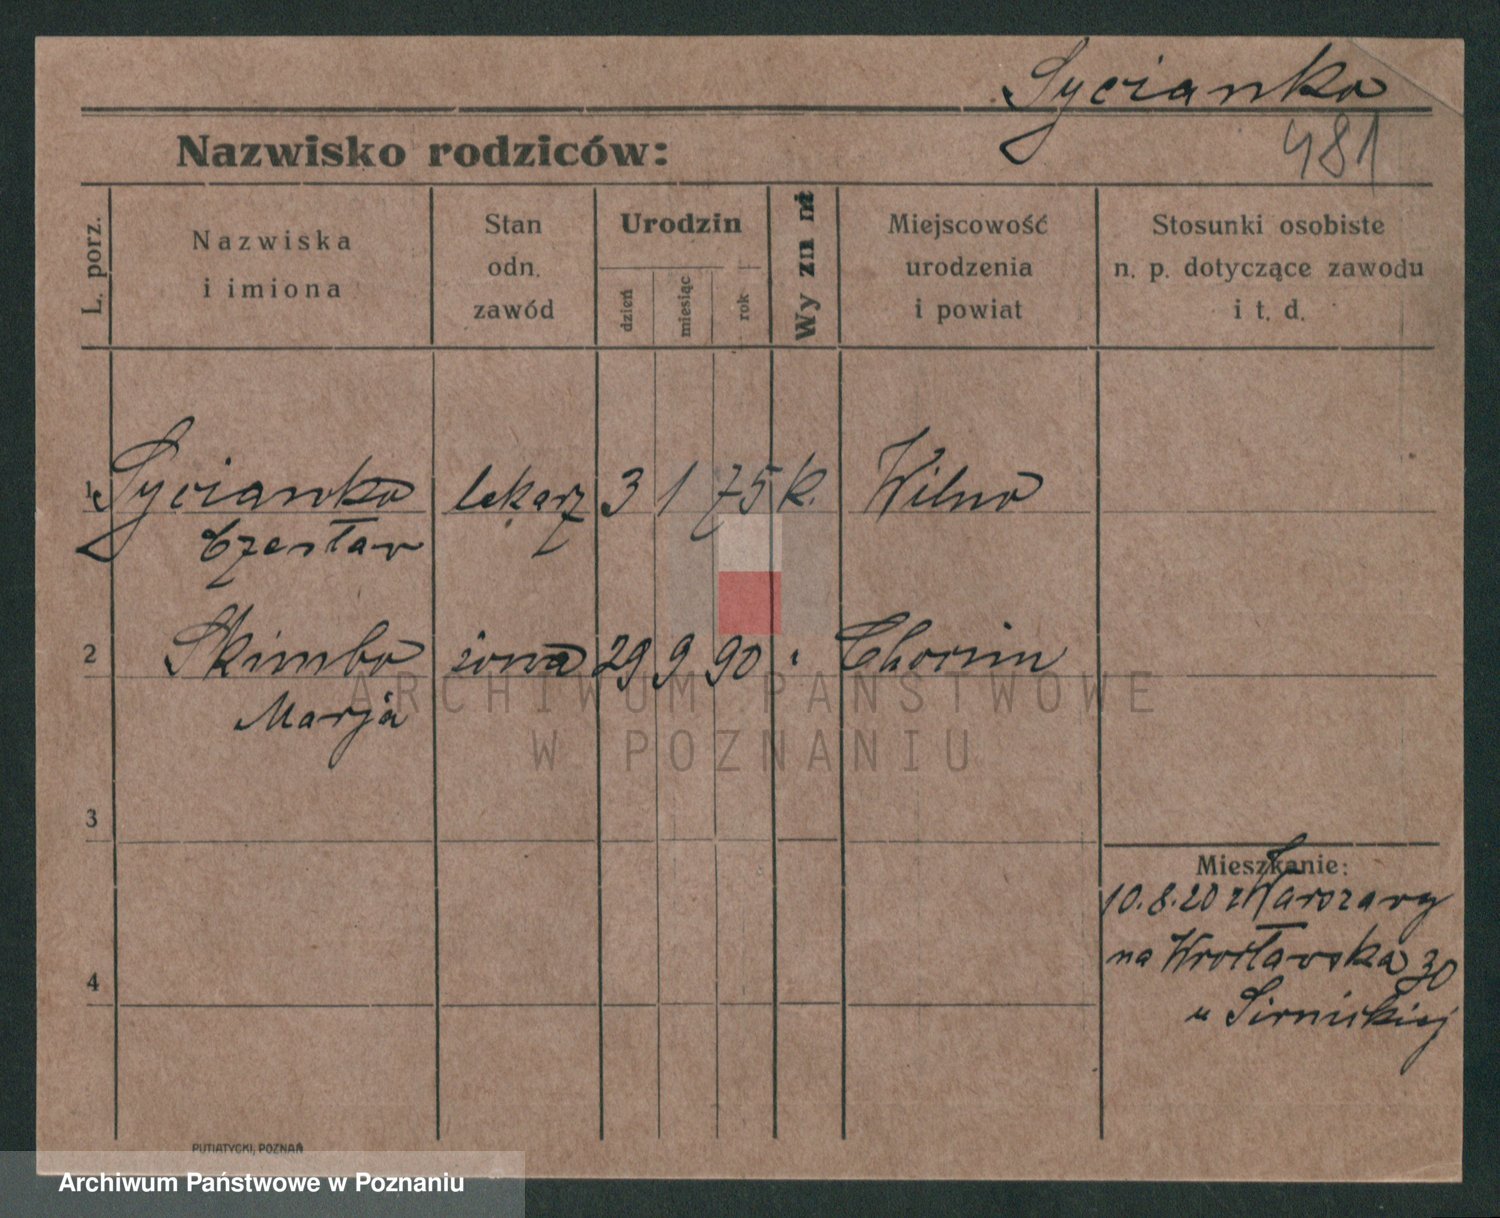 Sycianko
481
Nazwisko rodziców:
L. porz.
Nazwiska
i imiona
Stan
odn.
zawód
Urodzin
dzień
miesiąc
rok
Wy zn nie
Miejscowość
urodzenia
i powiat
Stosunki osobiste
n. p. dotyczące zawodu
i t. d.
1 Sycianko lekarz 3 1 75 k. Wilno
Czesław
2 Skimbo żona 29 9 90 Chocim
Marja
3
Mieszkanie:
10.8.20 z Warszawy
na Wrocławska 30
4
u Sirnickiej
ARCHIWUM PAŃSTWOWE
W POZNANIU
PUTIATYCKI, POZNAŃ
Archiwum Państwowe w Poznaniu